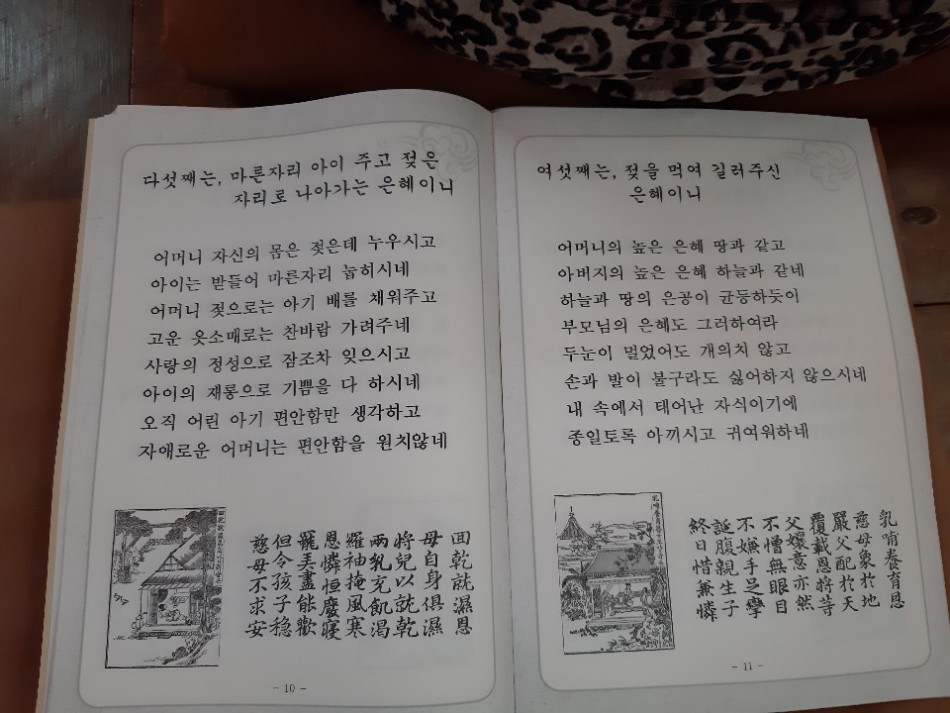 다섯째는, 마른자리 아이 주고 젖은
자리로 나아가는 은혜이니
어머니 자신의 몸은 젖은데 누우시고
아이는 받들어 마른자리 눕히시네
어머니 젖으로는 아기 배를 채워주고
고운 옷소매로는 찬바람 가려주네
사랑의 정성으로 잠조차 잊으시고
아이의 재롱으로 기쁨을 다 하시네
오직 어린 아기 편안함만 생각하고
자애로운 어머니는 편안함을 원치않네
廻乾就濕恩
母自身俱濕
將兒以就乾
兩乳充飢渴
羅袖掩風寒
恩憐恒廢寢
寵美盡能歡
但令孩子穩
慈母不求安
- 10 -
여섯째는, 젖을 먹여 길러주신
은혜이니
어머니의 높은 은혜 땅과 같고
아버지의 높은 은혜 하늘과 같네
하늘과 땅의 은공이 균등하듯이
부모님의 은혜도 그러하여라
두눈이 멀었어도 개의치 않고
손과 발이 불구라도 싫어하지 않으시네
내 속에서 태어난 자식이기에
종일토록 아끼시고 귀여워하네
乳哺養育恩
慈母象於地
嚴父配於天
覆載恩將等
父孃意亦然
不憎無眼目
不嫌手足攣
誕腹親生子
終日惜兼憐
- 11 -